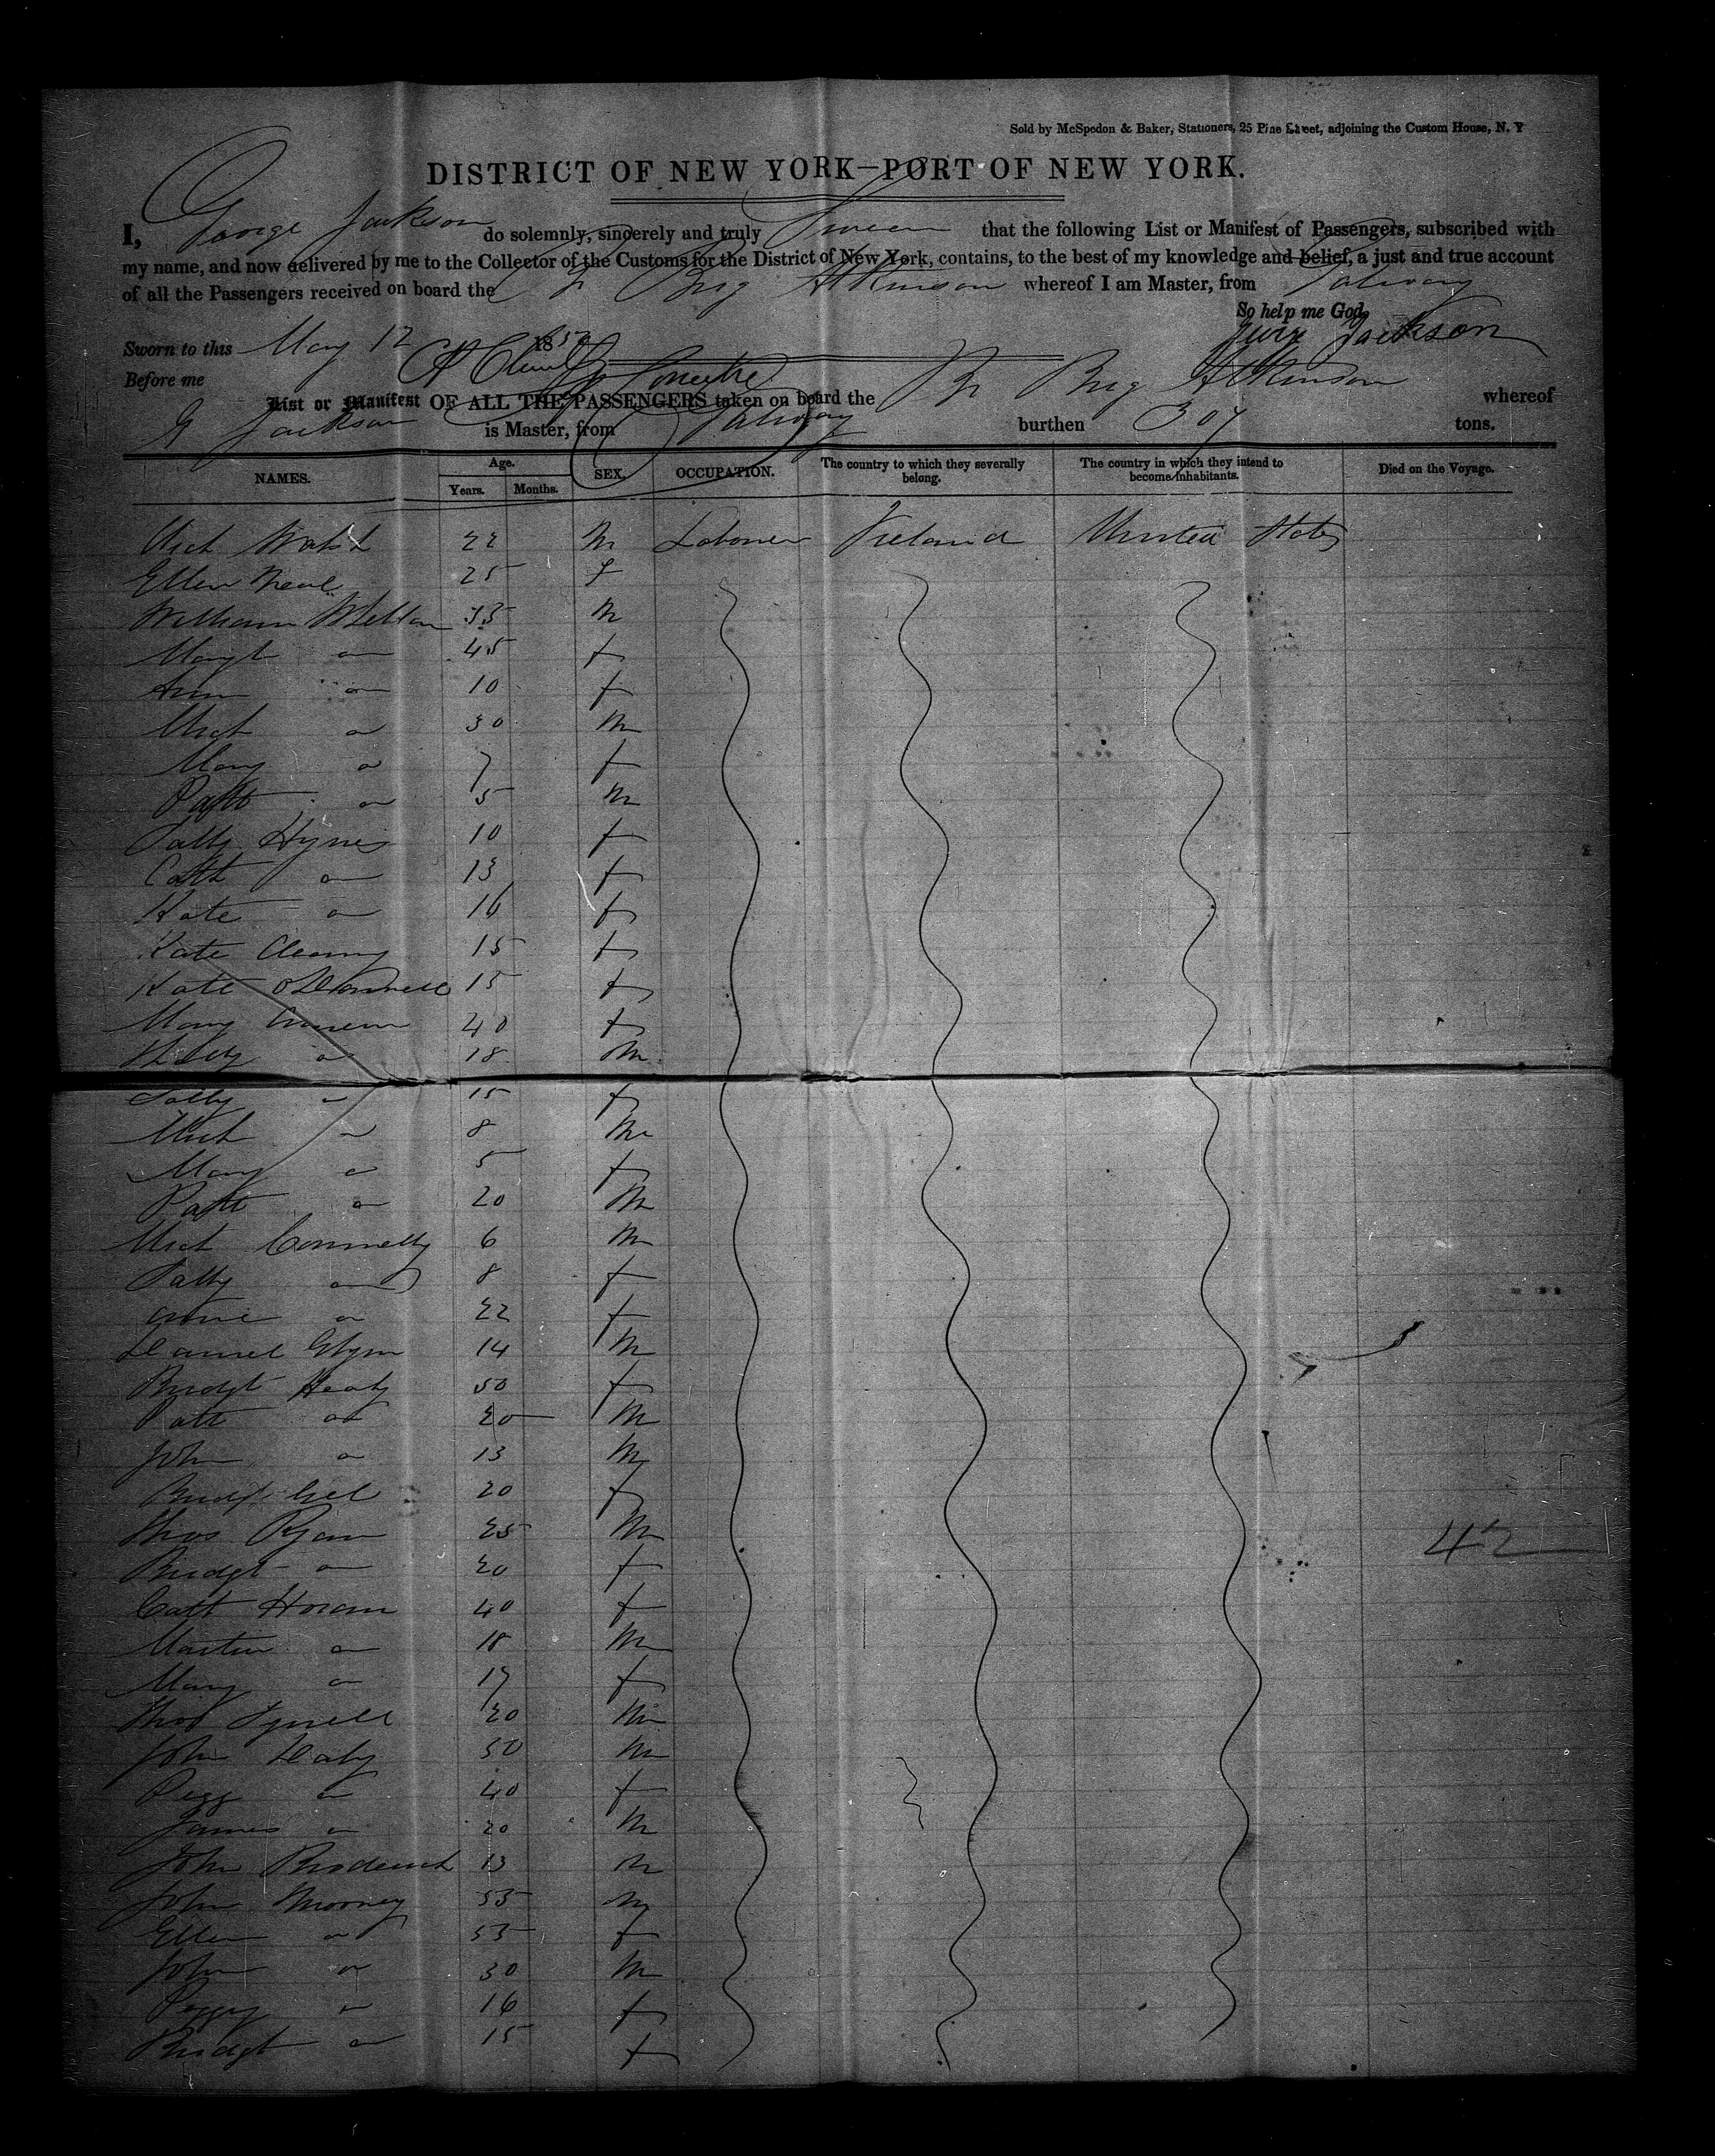 Sold by McSpedon & Baker, Stationers, 25 Pine Street, adjoining the Custom House, N. Y
DISTRICT OF NEW YORK—PORT OF NEW YORK.
I, George Jackson do solemnly, sincerely and truly Swear that the following List or Manifest of Passengers, subscribed with
my name, and now delivered by me to the Collector of the Customs for the District of New York, contains, to the best of my knowledge and belief, a just and true account
of all the Passengers received on board the Br Brig Atkinson whereof I am Master, from Galway
So help me God.
Sworn to this May 12 185 Jackson
Before me
List or Manifest OF ALL THE PASSENGERS taken on board the Br Brig Atkinson whereof
G Jackson is Master, from Galway burthen 307 tons.
NAMES. Age. Years. Months. SEX. OCCUPATION. The country to which they severally belong. The country in which they intend to become inhabitants. Died on the Voyage.
Mich Walsh 22 M Laborer Ireland United States
Ellen Neal 25 f
William Mellon 35 M
Margt " 45 f
Ann " 10 f
Mich " 30 M
Mary " 7 f
Patt " 5 M
Patty Hynes 10 f
Cath " 13 f
Kate " 16 f
Kate Cleary 15 f
Kate O'Donnell 15 f
Mary 40 f
" 18 M
" 15 f
Mich " 8 M
Mary " 5 f
Patt " 20 M
Mich Connelly 6 M
" 8 f
" 22 f
Daniel Glynn 14 M
Bridgt Healy 50 f
Patt " 20 M
John " 13 M
Bridgt 20 f
Thos Ryan 25 M
42
Bridgt " 20 f
Catt Horan 40 f
Martin " 18 M
Mary " 17 f
Thos Tyrrell 20 M
John Daly 50 M
Pegg " 40 f
James " 20 M
John Broderick 13 M
John Mooney 55 M
Ellen " 55 f
John " 30 M
Peggy " 16 f
Bridgt " 15 f